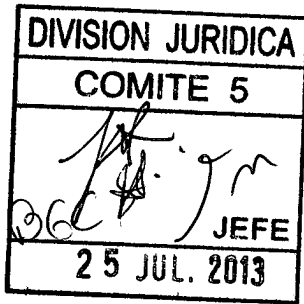 DIVISION JURIDICA
COMITE 5
JEFE
25 JUL. 2013